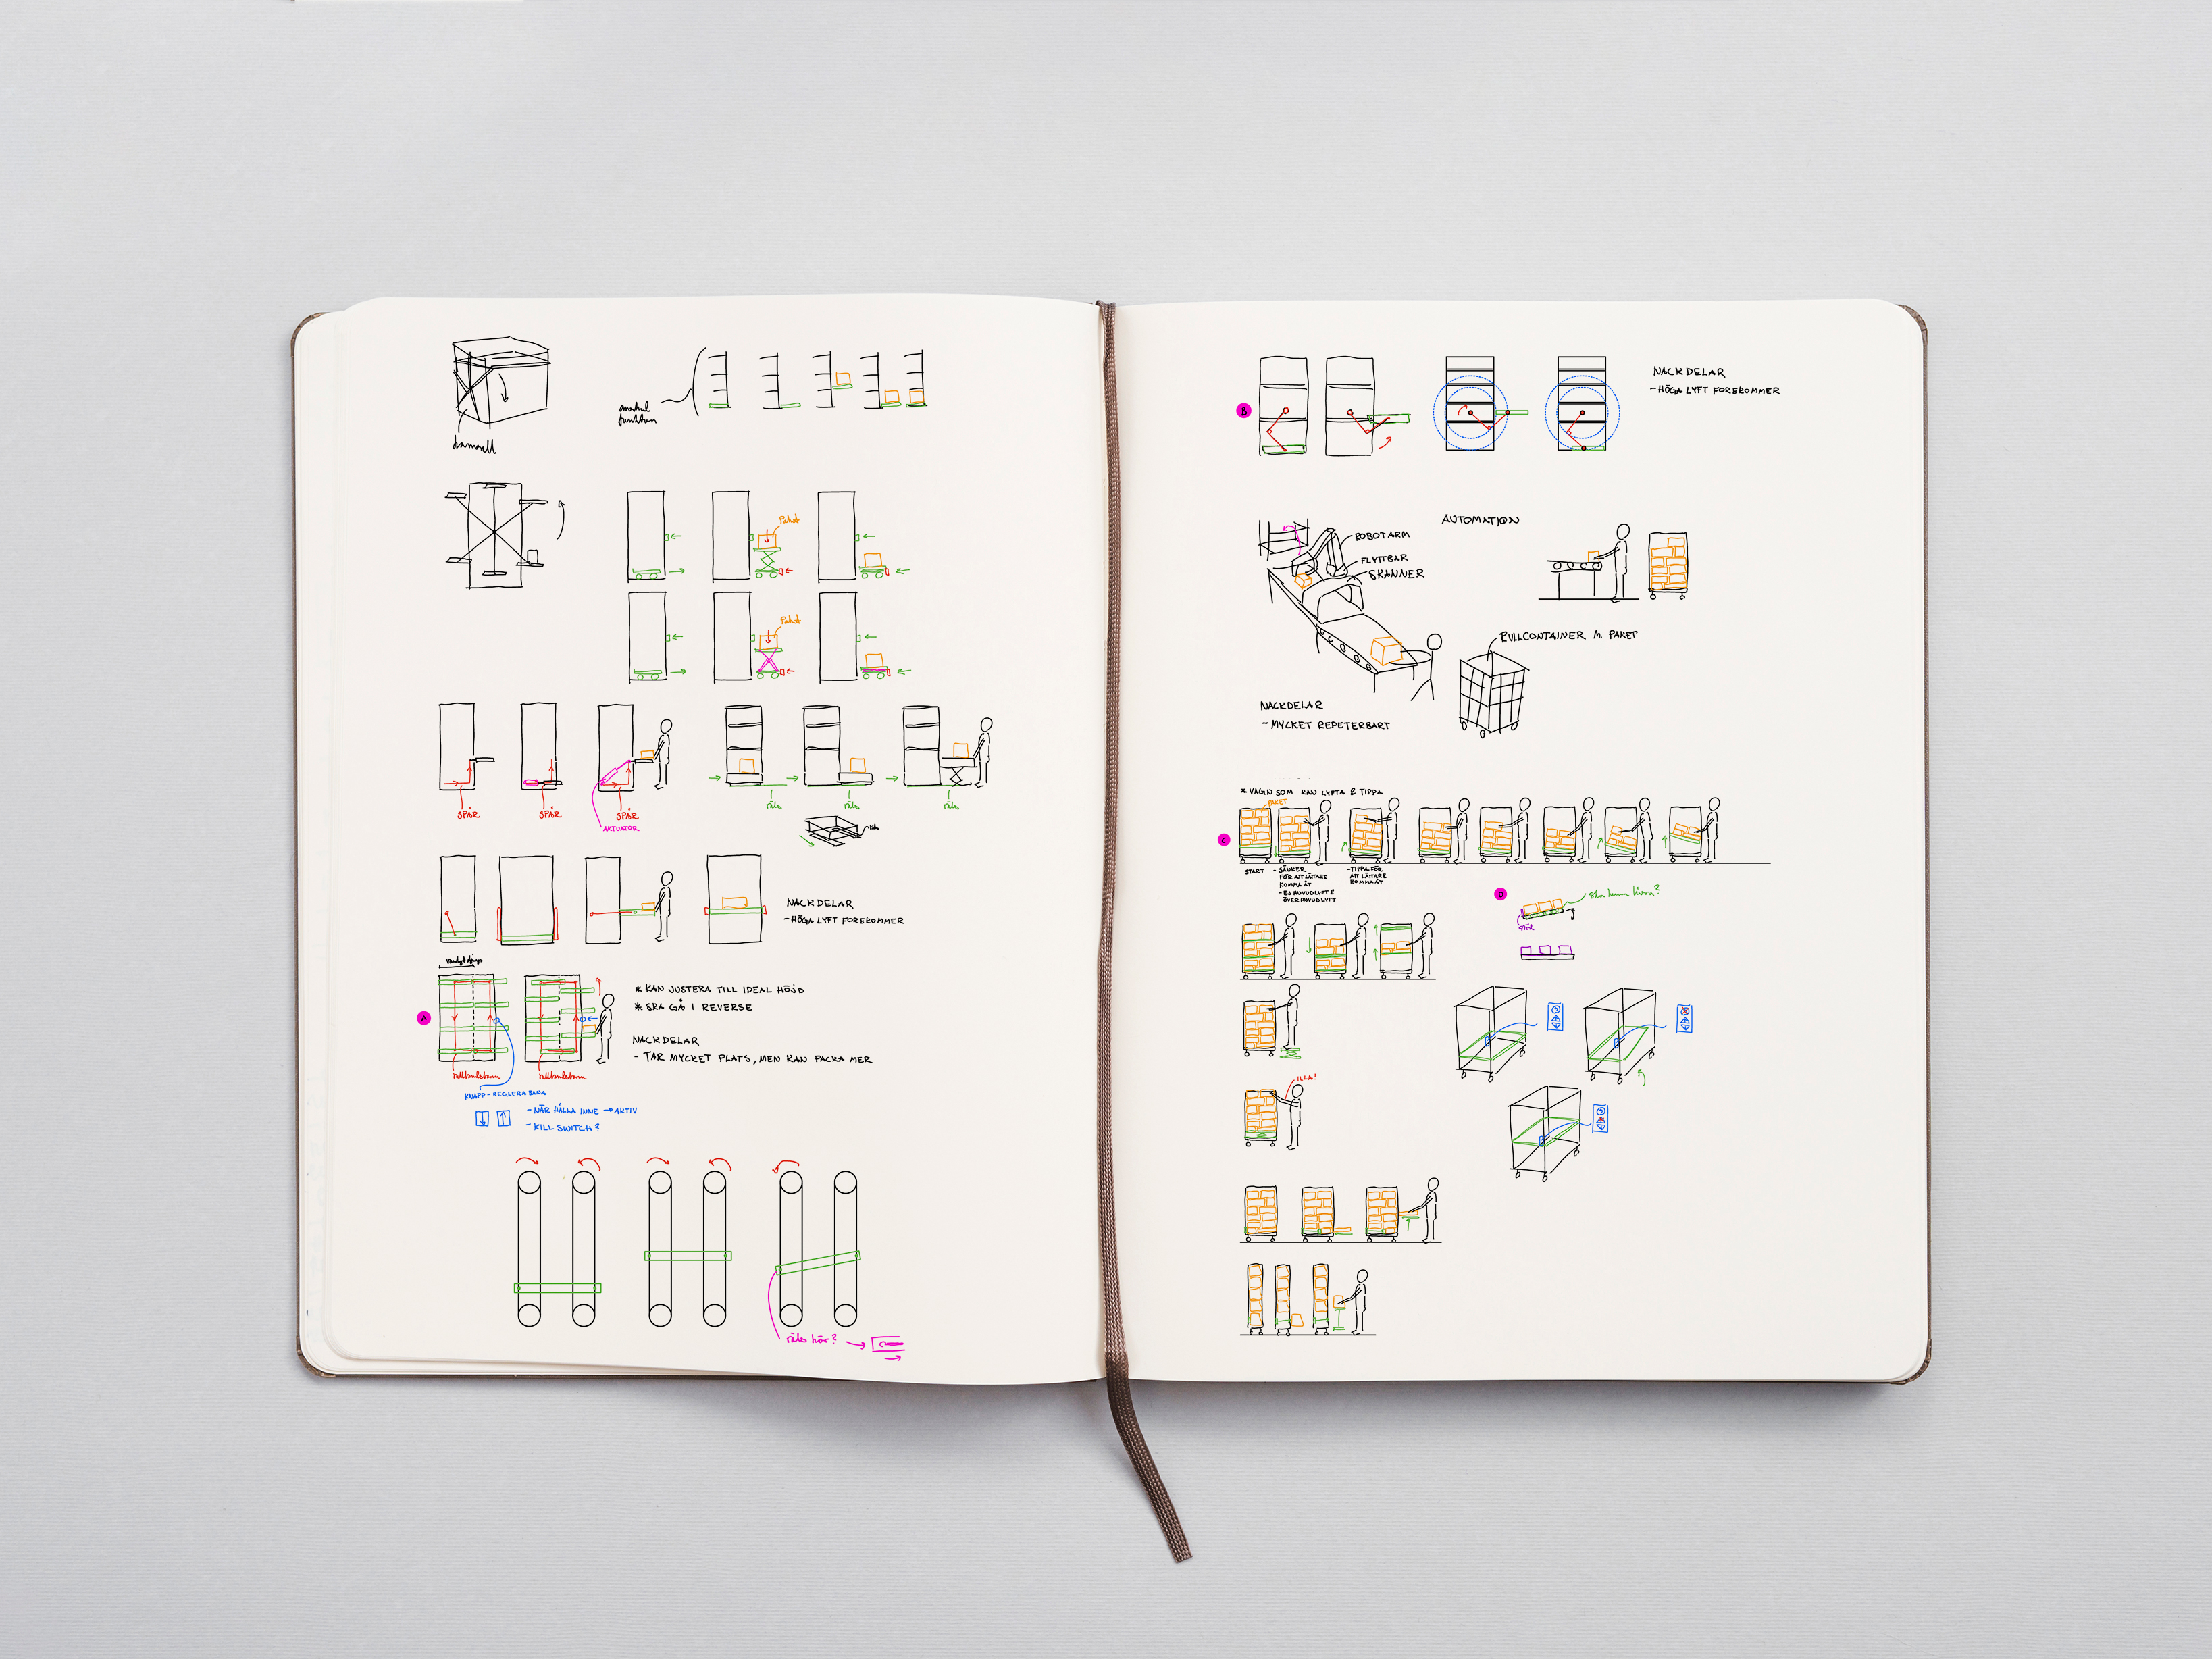 funktion
Paket
Paket
SPÅR
SPÅR
SPÅR
AKTUATOR
räls
räls
räls
NACKDELAR
- HÖGA LYFT FOREKOMMER
A
* KAN JUSTERA TILL IDEAL HÖJD
* SKA GÅ I REVERSE
NACKDELAR
- TAR MYCKET PLATS, MEN KAN PACKA MER
KNAPP - REGLERA BANA
- NÄR HÅLLA INNE → AKTIV
- KILL SWITCH?
räls här?
B
NACKDELAR
- HÖGA LYFT FOREKOMMER
AUTOMATION
ROBOTARM
FLYTTBAR
SKANNER
RULLCONTAINER M. PAKET
NACKDELAR
- MYCKET REPETERBART
* VAGN SOM KAN LYFTA & TIPPA
PAKET
C
START
- SÄNKER
FÖR ATT LÄTTARE
KOMMA ÅT
- EJ HUVUDLYFT &
ÖVER HUVUDLYFT
- TIPPA FÖR
ATT LÄTTARE
KOMMA ÅT
D
ILLA!